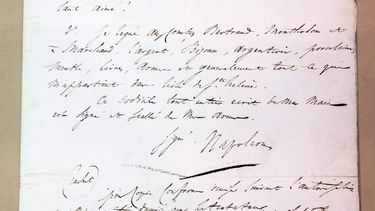 tant aimé !
2° Je legue aux Comtes Bertrand, Montholon et
à Marchand l'argent, Bijoux, argenterie, porcelaine,
meubles, livres, armes et generalement tout ce que
m'appartient dans l'isle de Ste helene.
Ce codicile tout entier ecrit de ma main
est signé et scellé de mes armes.
Signé Napoleon
Cachet
pour Copie Conforme
suivant